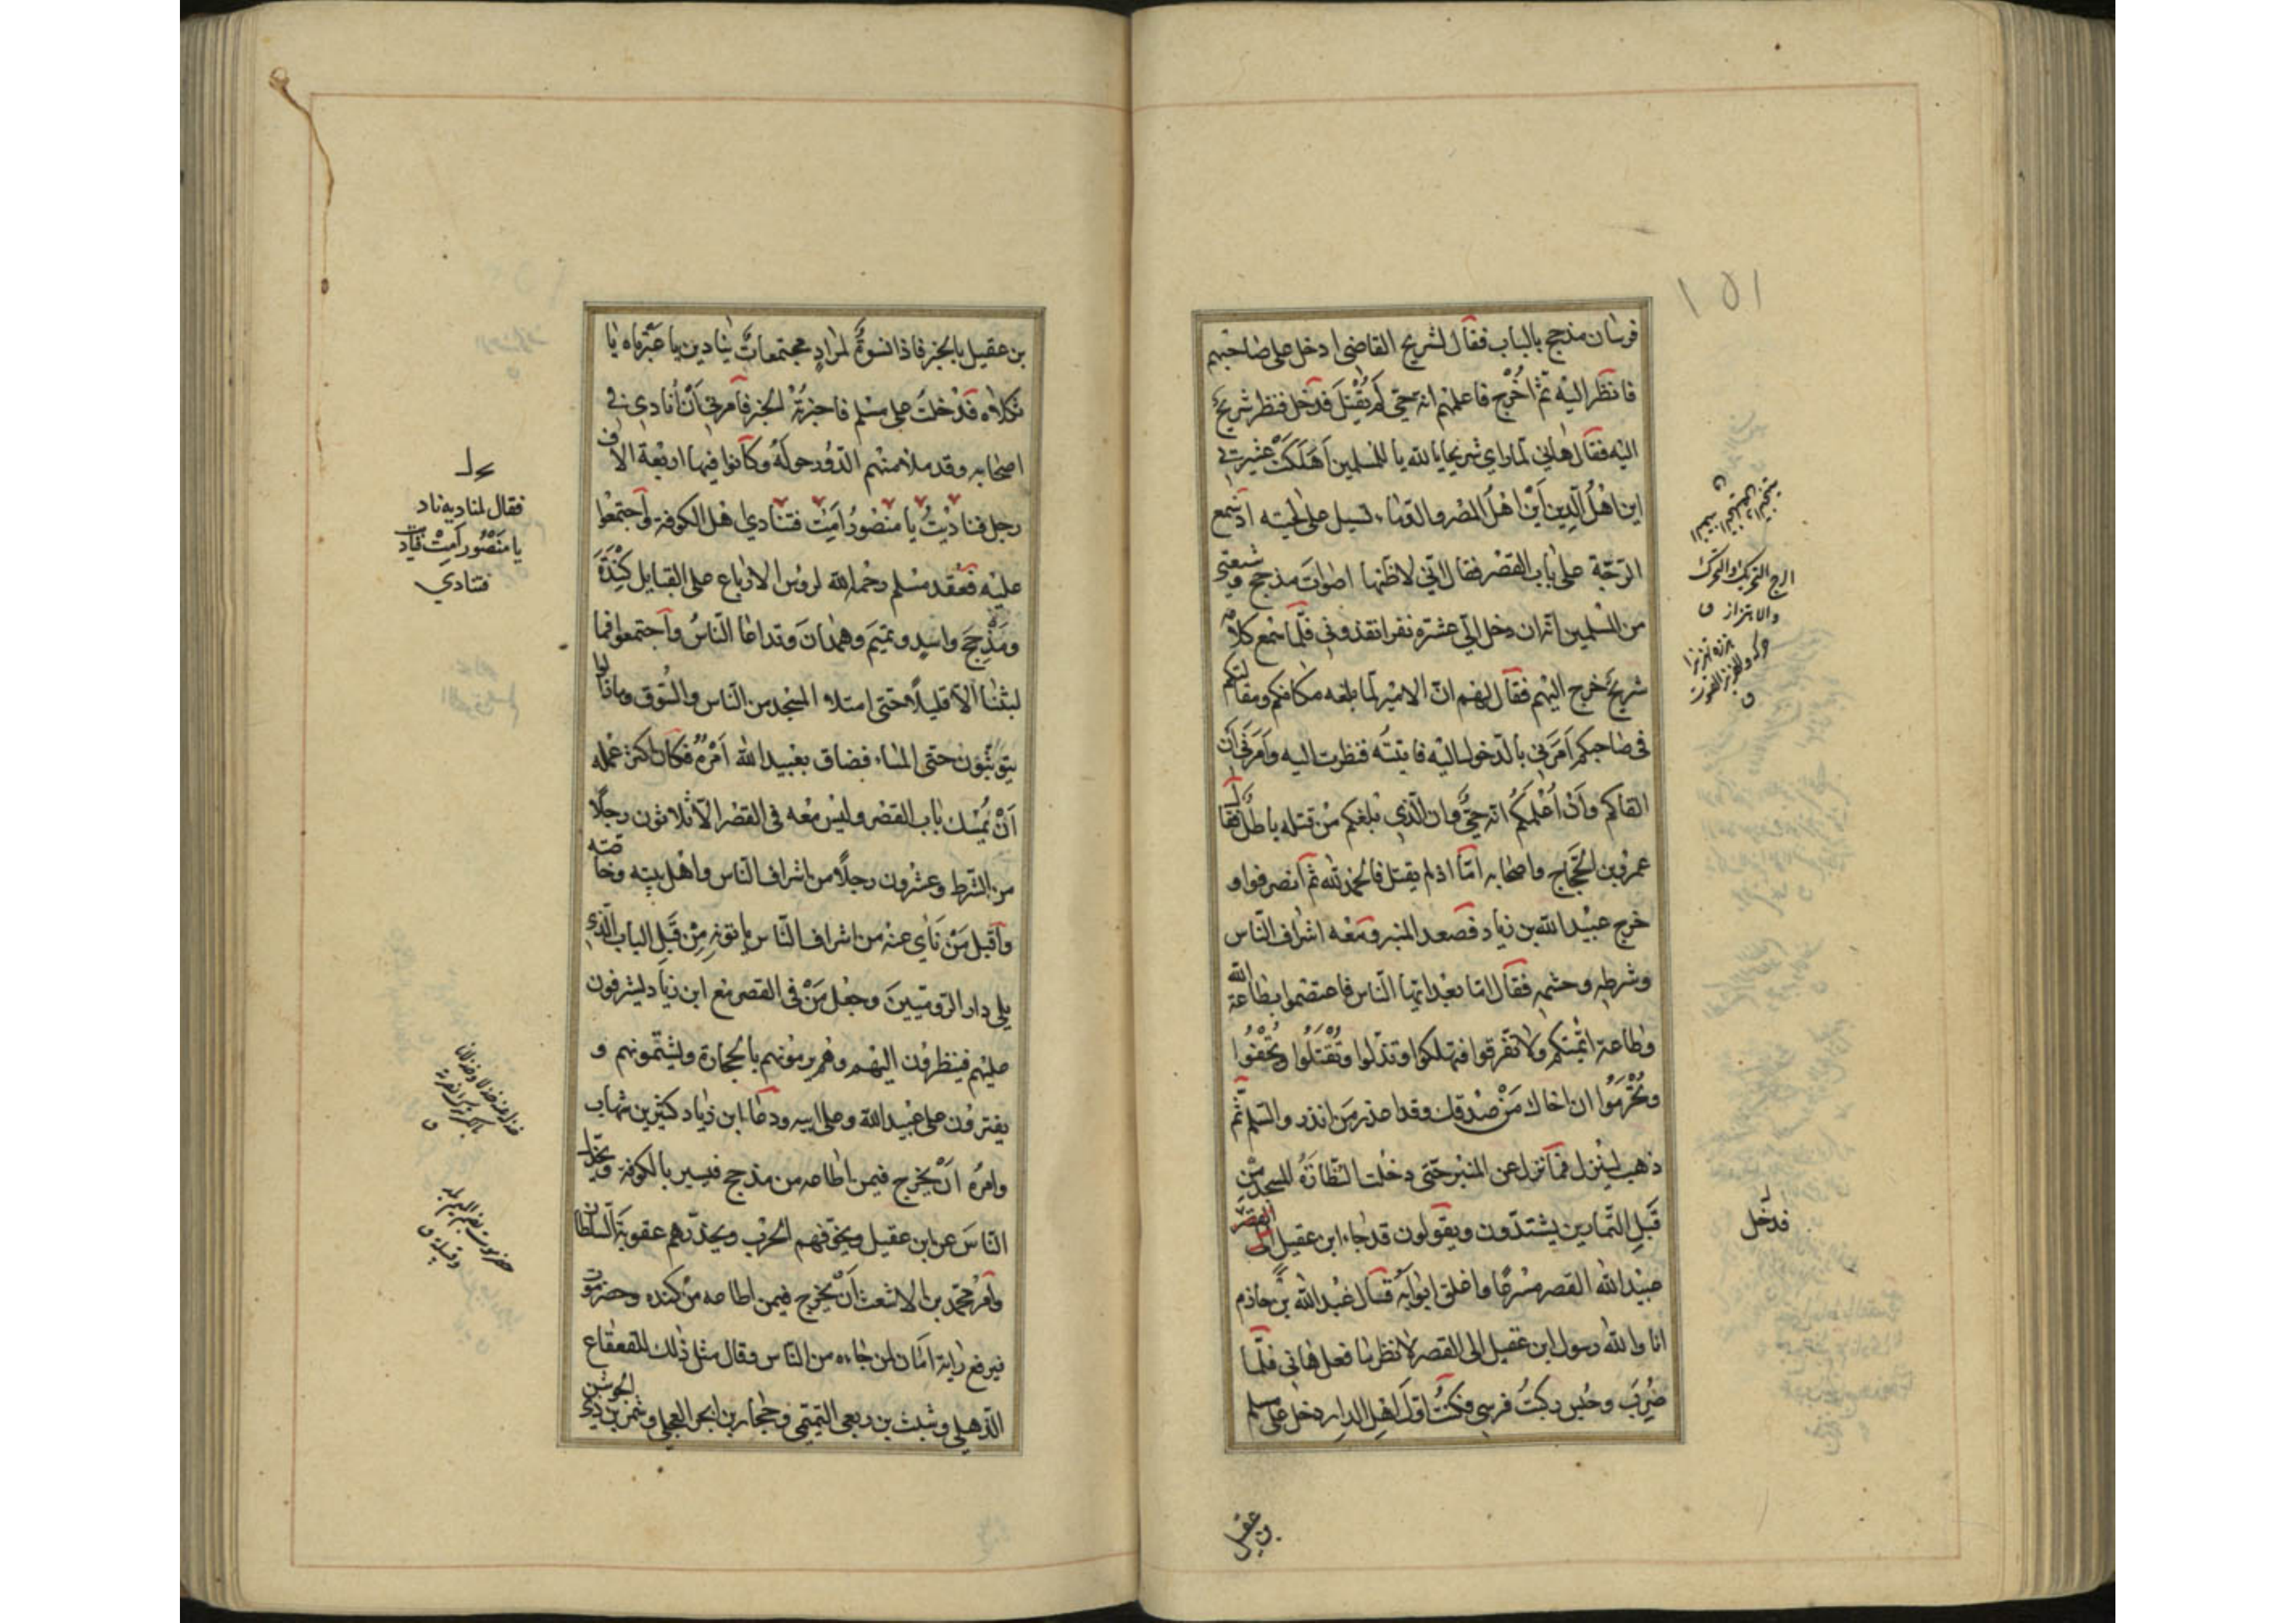 ١٥١
فرسان مذحج بالباب فقال لشريح القاضى ادخل على صاحبهم
فانظر اليه ثمّ اخُرْج فاعلمهم انه حىّ لم يُقْتَلْ فدخل فنظر شريحٌ
اليه فقال هانى لمّا راى شريحا يا لله يا للمسلمين اَهَلَكَتْ عشيرتى
اين اهْلُ الّدين اَيْنَ اهْلُ المصْر والدّماء تسيل على لحيته اذ سمع
الرّجّة على باب القصْر فقال انّى لاظنّها اصوات مذحج وشيعتى
من المسْلمين انّه ان دخل الىّ عشرة نفر انقذونى فلّما سمع كلامه
شريحٌ خرج اليهم فقال لهم انّ الامير لمّا بلغه مكانكم ومقالتكم
فى صاحبكم اَمَرَنى بالّدخول اليْه فاتيتُه فنظرت اليه وَامَرَنى اَن
القاكم وَاَنْ اُعْلِمَكُم انه حىٌّ وان الّذى بلغكم مِنْ قتله باطلٌ فقال
عمرُو بن الحَجّاج واصحابه امّا اذ لم يقتل فالحمْد لله ثم انصرفوا و
خرج عبيْد الله بن زياد فصعد المنبر ومَعْه اشراف النّاس
وشرطه وحشمه فقال امّا بعْد ايّها النّاس فاعتصموا بطاعة الله
وطاعة ائمّتكم ولا تفرّقوا فتهلكوا وتذلّوا وتُقْتَلُوا وتُجْفَوُا
وتُحْرَمُوا ان اخاك مَنْ صدقك وقد اعذر من انذر والسّلم ثمّ
ذهب لينزل فما نزل عن المنبر حتى دخلت النّظّارَةُ المسجد مِنْ
قَبلِ التّمارين يشتدّون ويقولون قد جاء ابن عقيل فدخل
عبيْد الله القصر مسْرعًا واغلق ابوابَهُ فقال عبْد الله بن حازم
انا والله رسول ابن عقيل الى القصر لانظر ما فعل هانى فلّما
ضُرِبَ وحُبس ركبتُ فرسى فكنتُ اوّلَ اهْل الدار دخل على مسلم
الرج التحريك والتحرك
والاهتزاز ق
فدخل
بن عقيل
بن عقيل بالخبر فاذا نسوةٌ لمرادٍ مجتمعاتٌ ينادين يا عَبْرتاه يا
ثكلاه فدْخلتُ على مسْلم فاخبرْتُهُ الخبر فاَمرنى اَنْ اُنادى فى
اصحابه وقد ملا منهم الدّور حولَهُ وكانوا فيها اربعَة الاف
رجل فناديْتُ يا منصُورُ اَمِتْ فتنادى اهْل الكوفة وَاجتمعُوا
عليْه فعقد مسْلم رحمه الله لرؤس الارباع على القبايل كِنْدَةَ
ومَذْحِجَ واسدٍ وتميَمَ وهمْدانَ وتداعا النّاسُ وَاجتمعوا فما
لبثنا الّا قليلًا حتى امتلاء المسْجد من النّاس والسُّوق ومازالوا
يتوثّبُون حتى المساء فضاق بعُبيد الله اَمْرُهُ فكان اكثر عمله
اَنْ يُمْسك باب القصْر وليْس معْه فى القصْر الّا ثلاثون رجلًا
من الشّرط وعشرون رجلًا من اشراف النّاس واهْل بيته وخاصّته
واَقبل مَنْ نَاى عنه من اشراف النّاس ياتونه مِنْ قبَل الباب الّذى
يلى دار الرّوميّينَ وجعَل مَنْ فى القصْر مع ابن زياد يشرفون
عليْهم فينظرون اليْهم وهُم يرمونهم بالحجارة ويشتمونهم و
يفترون على عبيْد الله وعلى ابيه ودعا ابن زياد كثير بن شهاب
وامرُه اَنْ يخرج فيمن اطاعه من مذحج فيسير بالكوفة ويخذّل
النّاسَ عن ابن عقيل ويخوّفهم الحرْب ويحذّرهم عقوبَة السّلطان
وامرُ محمّد بن الاشعث اَنْ يخرج فيمن اطاعه مِنْ كنده وحضرموت
فيرفع راية امَان لمن جاءه من النّاس وقال مثل ذلك للقعقاع
الذّهلى وشبث بن ربعى التّميمى وحجّار بن ابجر العجلى وشمر بن ذى الجوشن
فقال لمناديه ناد
يا مَنْصُور اَمِتْ فناديت
فتنادى